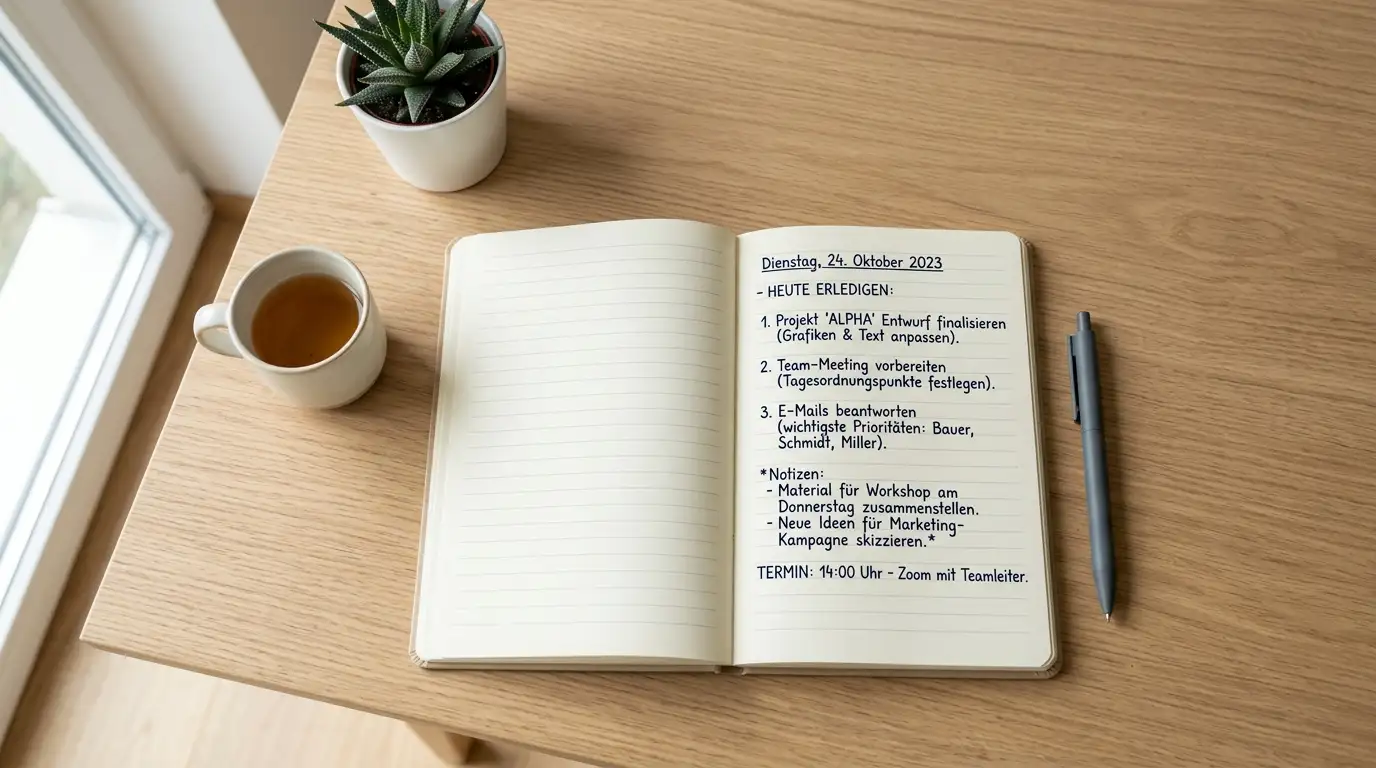 Dienstag, 24. Oktober 2023
- HEUTE ERLEDIGEN:
1. Projekt 'ALPHA' Entwurf finalisieren
(Grafiken & Text anpassen).
2. Team-Meeting vorbereiten
(Tagesordnungspunkte festlegen).
3. E-Mails beantworten
(wichtigste Prioritäten: Bauer,
Schmidt, Miller).
*Notizen:
- Material für Workshop am
Donnerstag zusammenstellen.
- Neue Ideen für Marketing-
Kampagne skizzieren.*
TERMIN: 14:00 Uhr - Zoom mit Teamleiter.